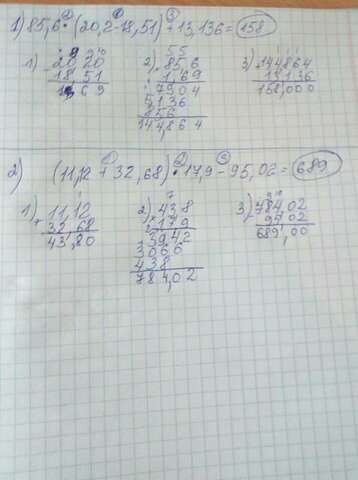 1) 85,6 · (20,2 - 18,51) + 13,136 = 158
1) 20,20 2) 85,6 3) 144,864
- 18,51 1,69 13,136
1,69 7704 158,000
5136
856
144,864
2) (11,12 + 32,68) · 17,9 - 95,02 = 689
1) 11,12 2) 438 3) 784,02
+ 32,68 179 95,02
43,80 3942 689,00
3066
438
784,02